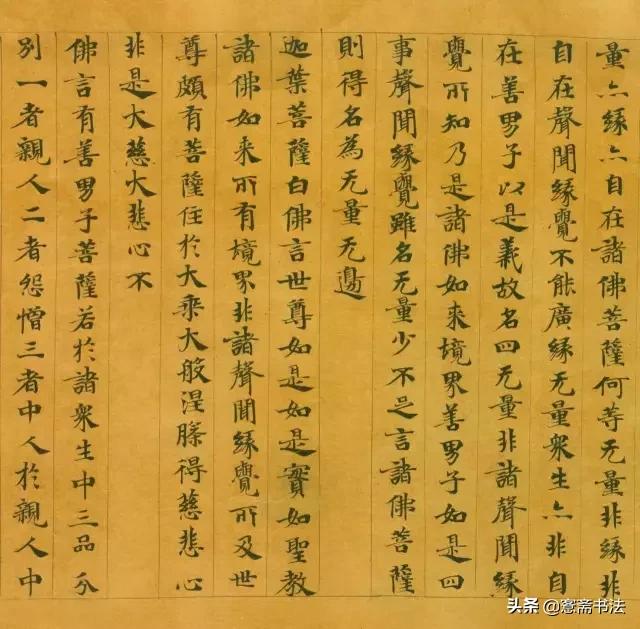 量亦緣亦自在諸佛菩薩何等无量非緣非
自在聲聞緣覺不能廣緣无量衆生亦非自
在善男子以是義故名四无量非諸聲聞緣
覺所知乃是諸佛如来境界善男子如是四
事聲聞緣覺雖名无量少不足言諸佛菩薩
則得名為无量无邊
迦葉菩薩白佛言世尊如是如是實如聖教
諸佛如来所有境界非諸聲聞緣覺所及世
尊頗有菩薩住於大乘大般涅槃得慈悲心
非是大慈大悲心不
佛言有善男子菩薩若於諸衆生中三品分
別一者親人二者怨憎三者中人於親人中
头条@窓斋书法